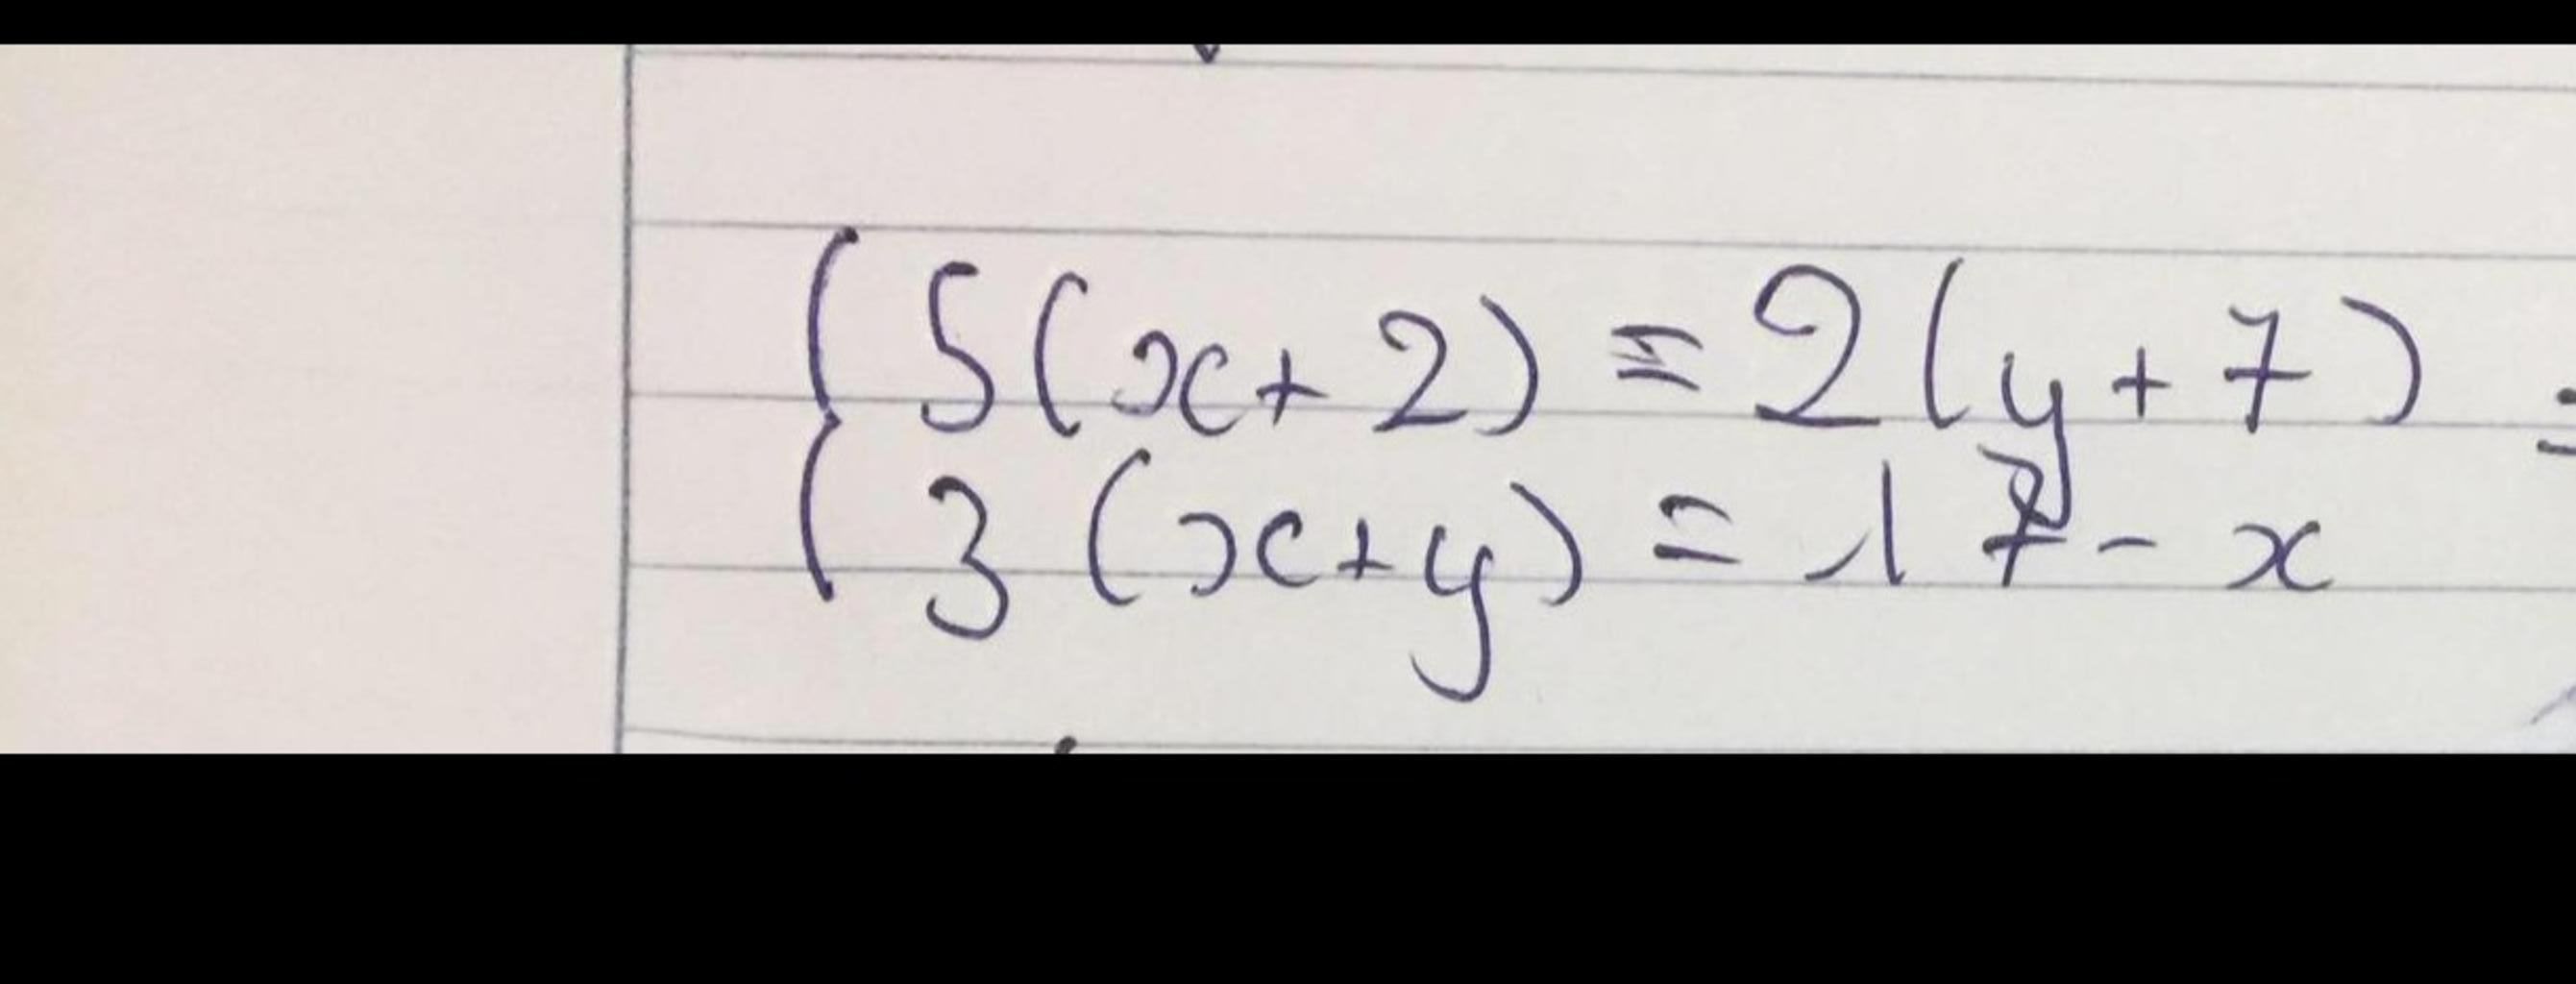 5(x+2) = 2(y+7) =
3(x+y) = 17 - x